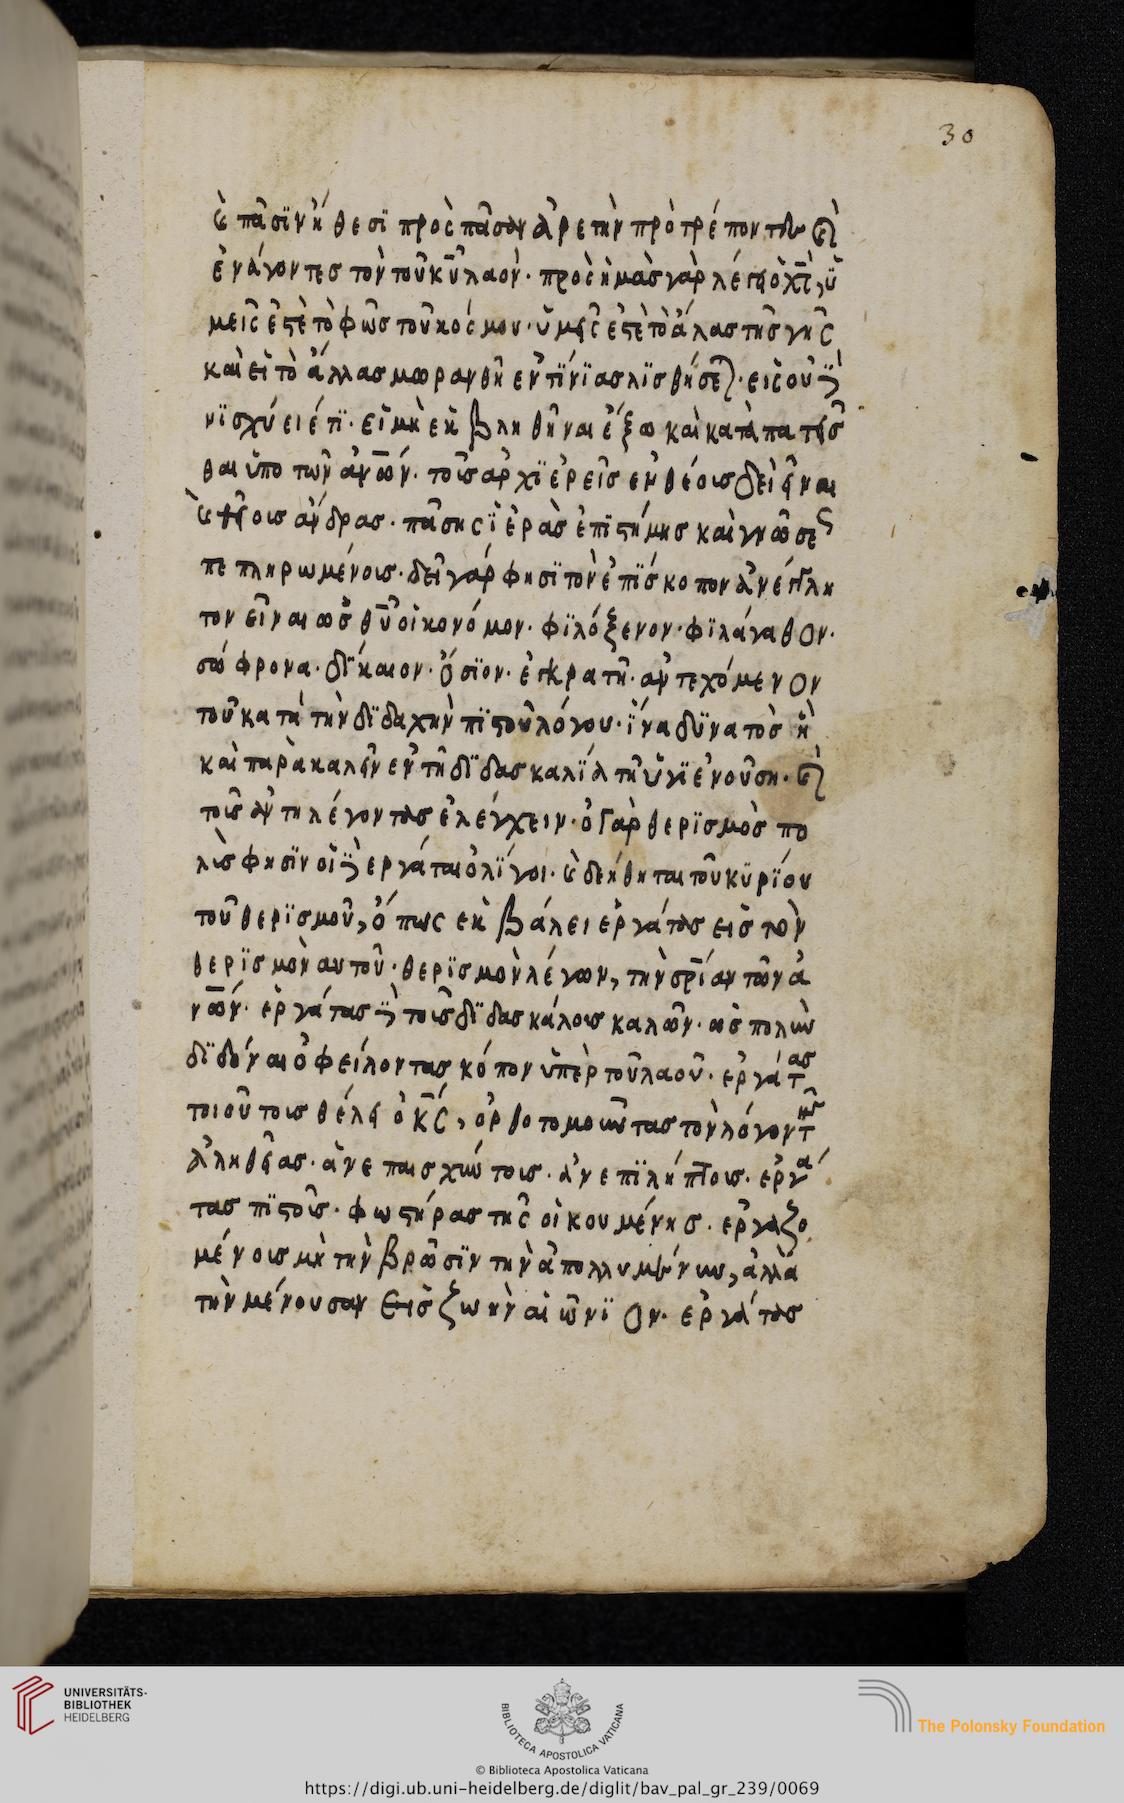 30
ὲ πᾶσϊν ἤθεσϊ πρὸς πᾶσαν ἀρετὴν πρὸτρέποντες καὶ
ἐνάγοντες τὸν τοῦ κ̅υ̅ λαὸν· πρὸς ἡμὰς γὰρ λέγει ὁ χ̅ς̅, ὑ
μεῖς ἐστὲ τὸ φῶς τοῦ κόσμου· ὑμεῖς ἐστὲ τὸ ἅλας τῆς γῆς
καὶ εἰ τὸ ἅλλας μωρανθῆ ἐν τίνϊ ἁλϊσθήσεται· εἰς οὐδὲ
νϊσχύει έτϊ· εἰ μὴ ἐκ βληθῆναι ἔξω καὶ κατὰπατεῖσ
θαι ὑπο τῶν ἀν̅ω̅ν· τοῖς ἀρχϊἐρεῖς ἐνθέοις δεῖ εἶναι
ὲ θείοις ἄνδρας· πάσης ϊἐρὰς ἐπϊστήμης καὶ γνώσεως
πεπληρωμένοις· δεῖ γάρ φησϊ τὸν ἐπϊσκοπον ἀνέγκλη
τον εἶναι ὡς θ̅υ̅ οἰκονόμον· φϊλόξενον· φϊλάγαθον·
σώφρονα· δϊκαιον· ὅσϊον· ἐγκρατῆ· ἀντεχόμενον
τοῦ κατὰ τὴν δϊδαχὴν πϊστοῦ λόγου· ϊνα δϋνατὸς ᾖ
καὶ παρὰκαλεῖν ἐν τῆ δϊδασκαλϊᾳ τῆ ὑγϊἐνούση· καὶ
τοῖς ἀντηλέγοντας ἐλέγχειν· ὁ Γὰρ θερϊσμὸς πο
λὶς φησϊν οἱ δὲ ἐργάται ὀλϊγοι· ὲ δεήθηται τοῦ κϋρϊου
τοῦ θερϊσμοῦ, ὅπως ἐκ βάλει ἐργάτας εἰς τὸν
θερϊσμὸν αυτοῦ· θερϊσμὸν λέγων, τὴν σ̅ρ̅ίαν τῶν ἀ
ν̅ω̅ν· ἐργάτας δὲ τοῖς δϊδασκάλοις καλῶν· ὡς πολὺν
δϊδόναι ὀφείλοντας κόπον ὑπὲρ τοῦ λαοῦ· ἐργάτας
τοιούτοις θέλει ὁ κ̅ς̅, ὀρθοτομοῦντας τὸν λόγον τῆς
ἀληθείας· ἀνεπαισχύντοις· ἀνεπϊλήπτοις· ἐργά
τας πϊστοῖς· φωστήρας τῆς οἰκουμένης· ἐργαζο
μένοις μὴ τὴν βρῶσϊν τὴν ἀπολλυμένην, ἀλλὰ
τὴν μένουσαν εἰς ζωὴν αἰώνϊον· ἐργάτας
UNIVERSITÄTS-
BIBLIOTHEK
HEIDELBERG
BIBLIOTECA APOSTOLICA VATICANA
The Polonsky Foundation
© Biblioteca Apostolica Vaticana
https://digi.ub.uni-heidelberg.de/diglit/bav_pal_gr_239/0069